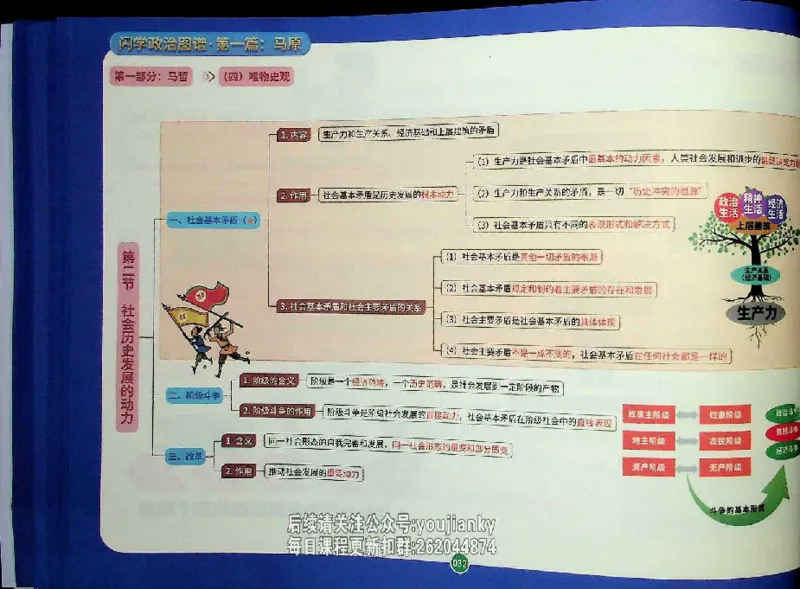 闪学政治图谱·第一篇：马原
第一部分：马哲 >> （四）唯物史观
第二节 社会历史发展的动力
一、社会基本矛盾
1. 内容
生产力和生产关系、经济基础和上层建筑的矛盾
2. 作用
社会基本矛盾是历史发展的根本动力
（1）生产力是社会基本矛盾中最基本的动力因素，人类社会发展和进步的最终决定力
（2）生产力和生产关系的矛盾，是一切“历史冲突的根源”
（3）社会基本矛盾具有不同的表现形式和解决方式
3. 社会基本矛盾和社会主要矛盾的关系
（1）社会基本矛盾是其他一切矛盾的根源
（2）社会基本矛盾规定和制约着主要矛盾的存在和发展
（3）社会主要矛盾是社会基本矛盾的具体体现
（4）社会主要矛盾不是一成不变的，社会基本矛盾在任何社会都是一样的
政治生活
精神生活
经济生活
上层建筑
生产关系
（经济基础）
生产力
二、阶级斗争
1. 阶级的含义
阶级是一个经济范畴，一个历史范畴，是社会发展到一定阶段的产物
2. 阶级斗争的作用
阶级斗争是阶级社会发展的直接动力，社会基本矛盾在阶级社会中的直接表现
三、改革
1. 含义
同一社会形态的自我完善和发展，同一社会形态的量变和部分质变
2. 作用
推动社会发展的重要动力
奴隶主阶级 奴隶阶级
地主阶级 农民阶级
资产阶级 无产阶级
政治斗
思想斗
经济斗
斗争的基本形式
后续请关注公众号:youjianky
每日课程更新扣群:262044874
032